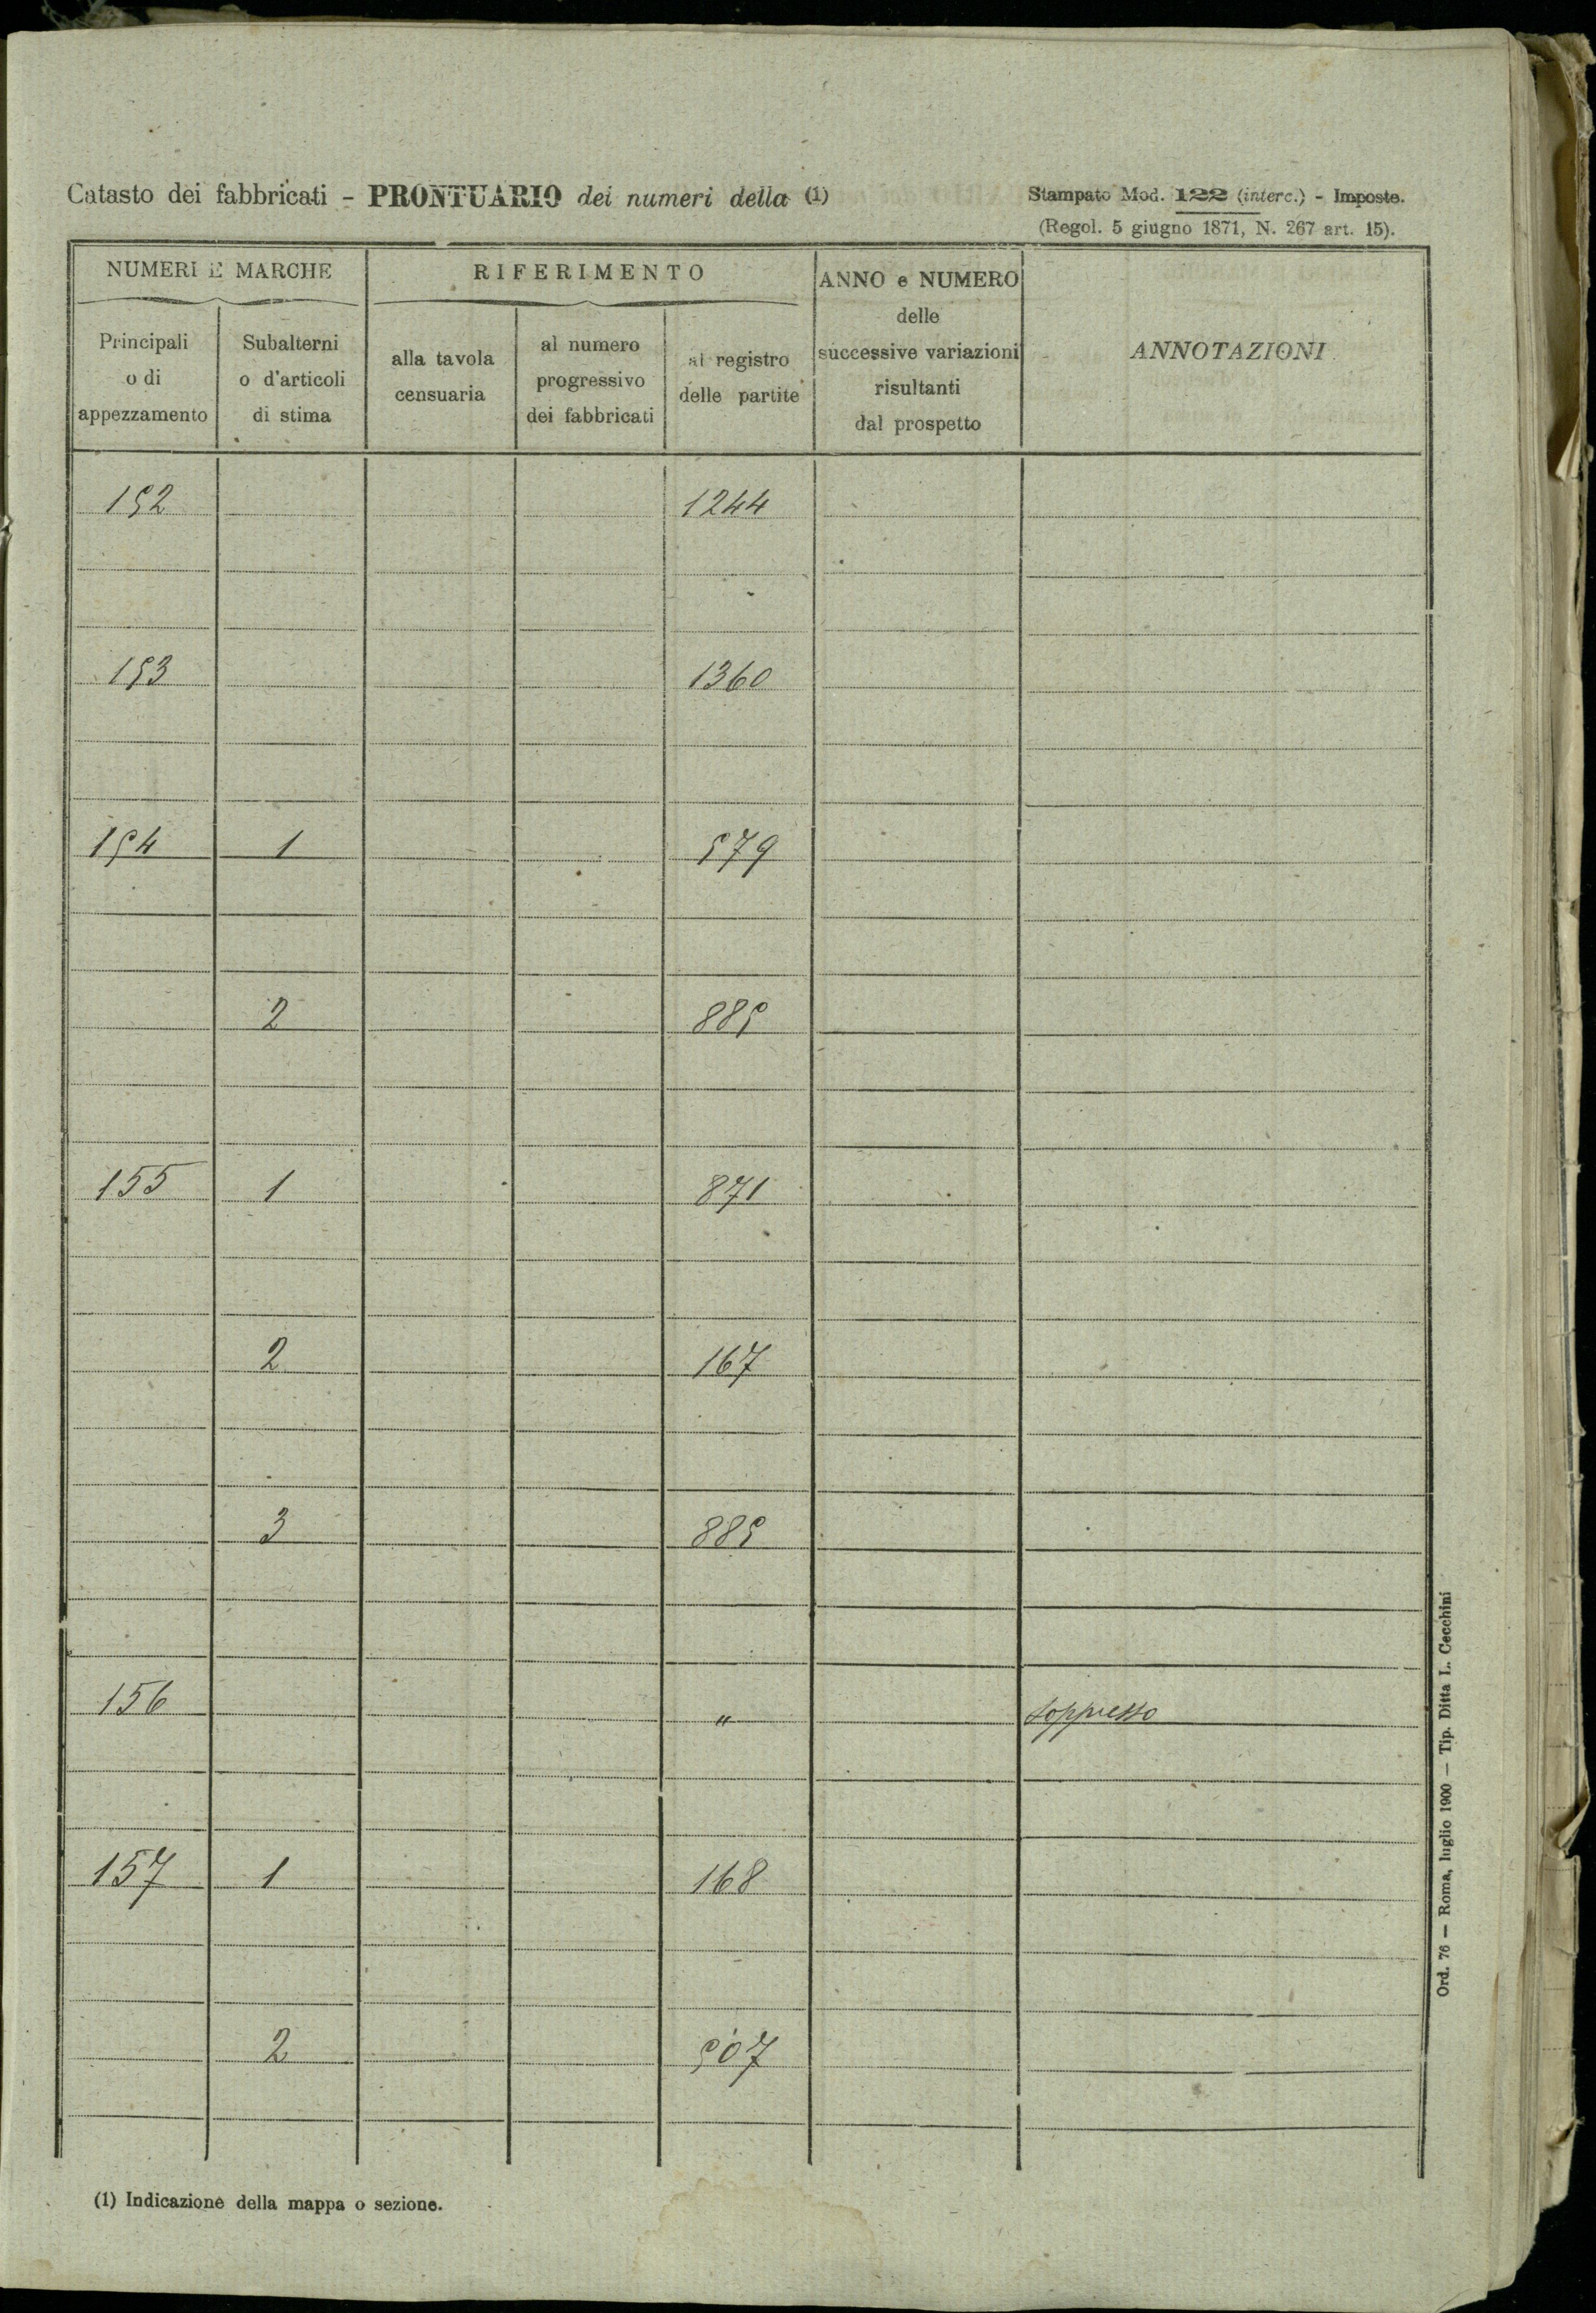 Catasto dei fabbricati - PRONTUARIO dei numeri della (1)
Stampato Mod. 122 (interc.) - Imposte.
(Regol. 5 giugno 1871, N. 267 art. 15).
NUMERI E MARCHE
RIFERIMENTO
ANNO e NUMERO
delle
successive variazioni
risultanti
dal prospetto
ANNOTAZIONI
Principali
o di
appezzamento
Subalterni
o d'articoli
di stima
alla tavola
censuaria
al numero
progressivo
dei fabbricati
al registro
delle partite
152 1244
153 1360
154 1 579
2 885
155 1 871
2 167
3 885
156 " soppresso
157 1 168
2 507
(1) Indicazione della mappa o sezione.
Ord. 76 — Roma, luglio 1900 — Tip. Ditta L. Cecchini